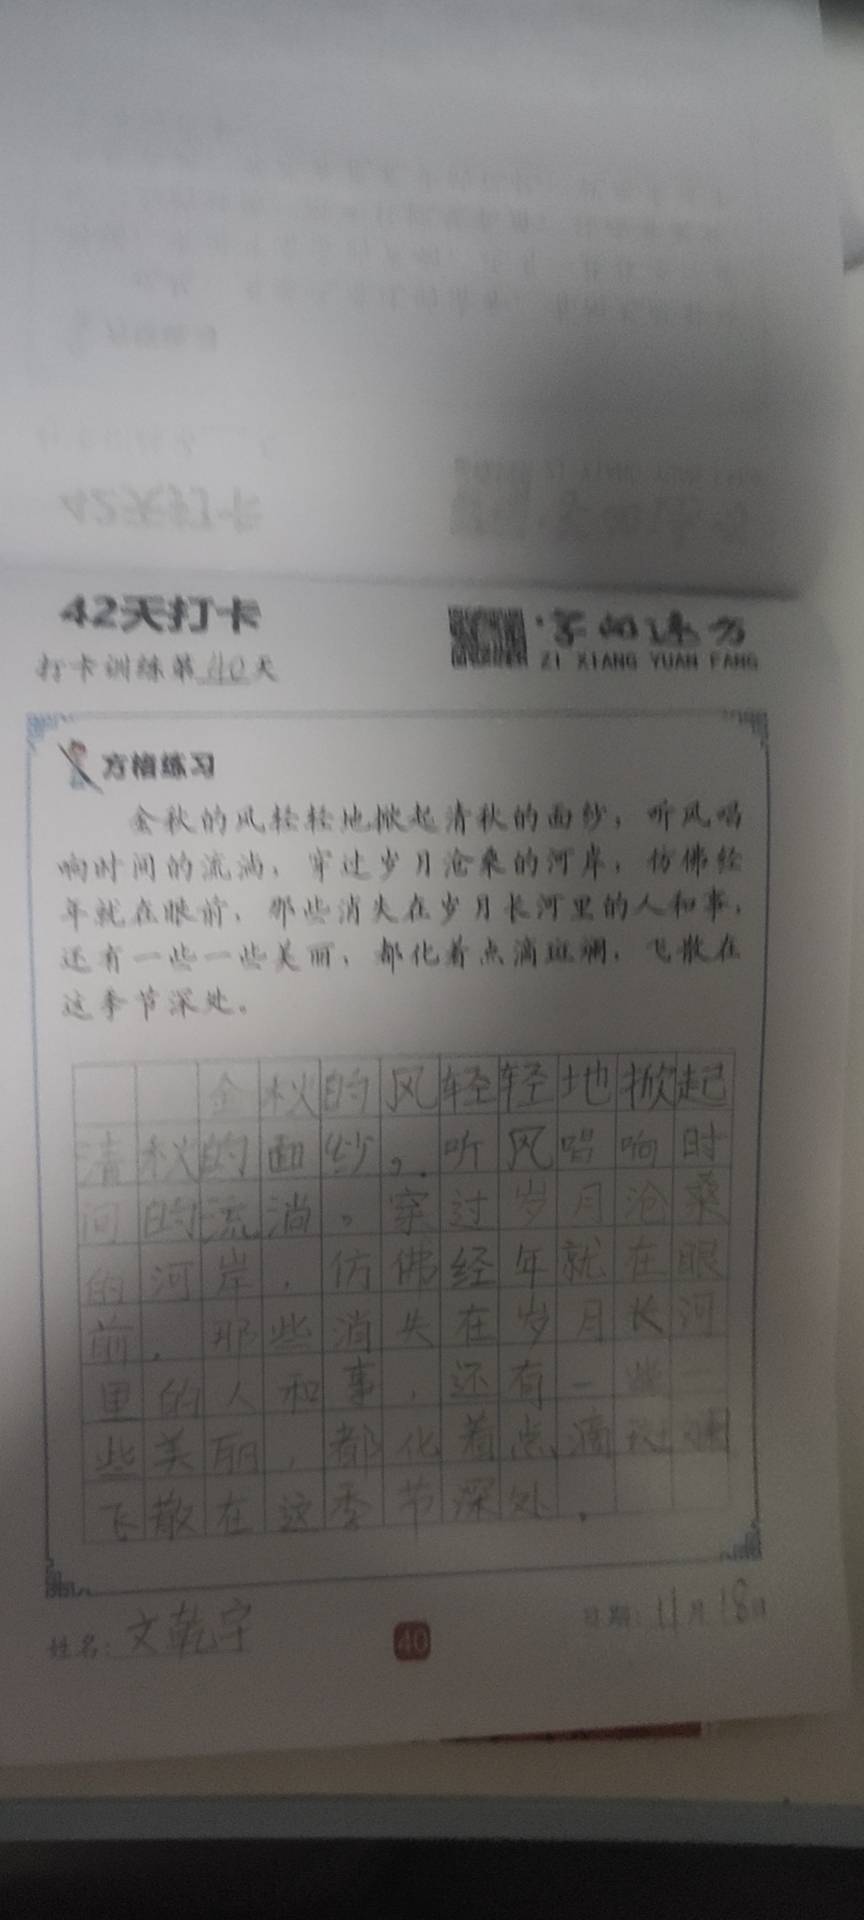 42天打卡
ZI XIANG YUAN FANG
打卡训练第40天
方格练习
金秋的风轻轻地掀起清秋的面纱，听风唱
响时间的流淌，穿过岁月沧桑的河岸，仿佛经
年就在眼前，那些消失在岁月长河里的人和事，
还有一些一些美丽，都化着点滴斑斓，飞散在
这季节深处。
金秋的风轻轻地掀起
清秋的面纱，听风唱响时
间的流淌。穿过岁月沧桑
的河岸，仿佛经年就在眼
前，那些消失在岁月长河
里的人和事，还有一些一
些美丽，都化着点滴斑斓
飞散在这季节深处。
姓名：文乾宇
40
日期：11月18日